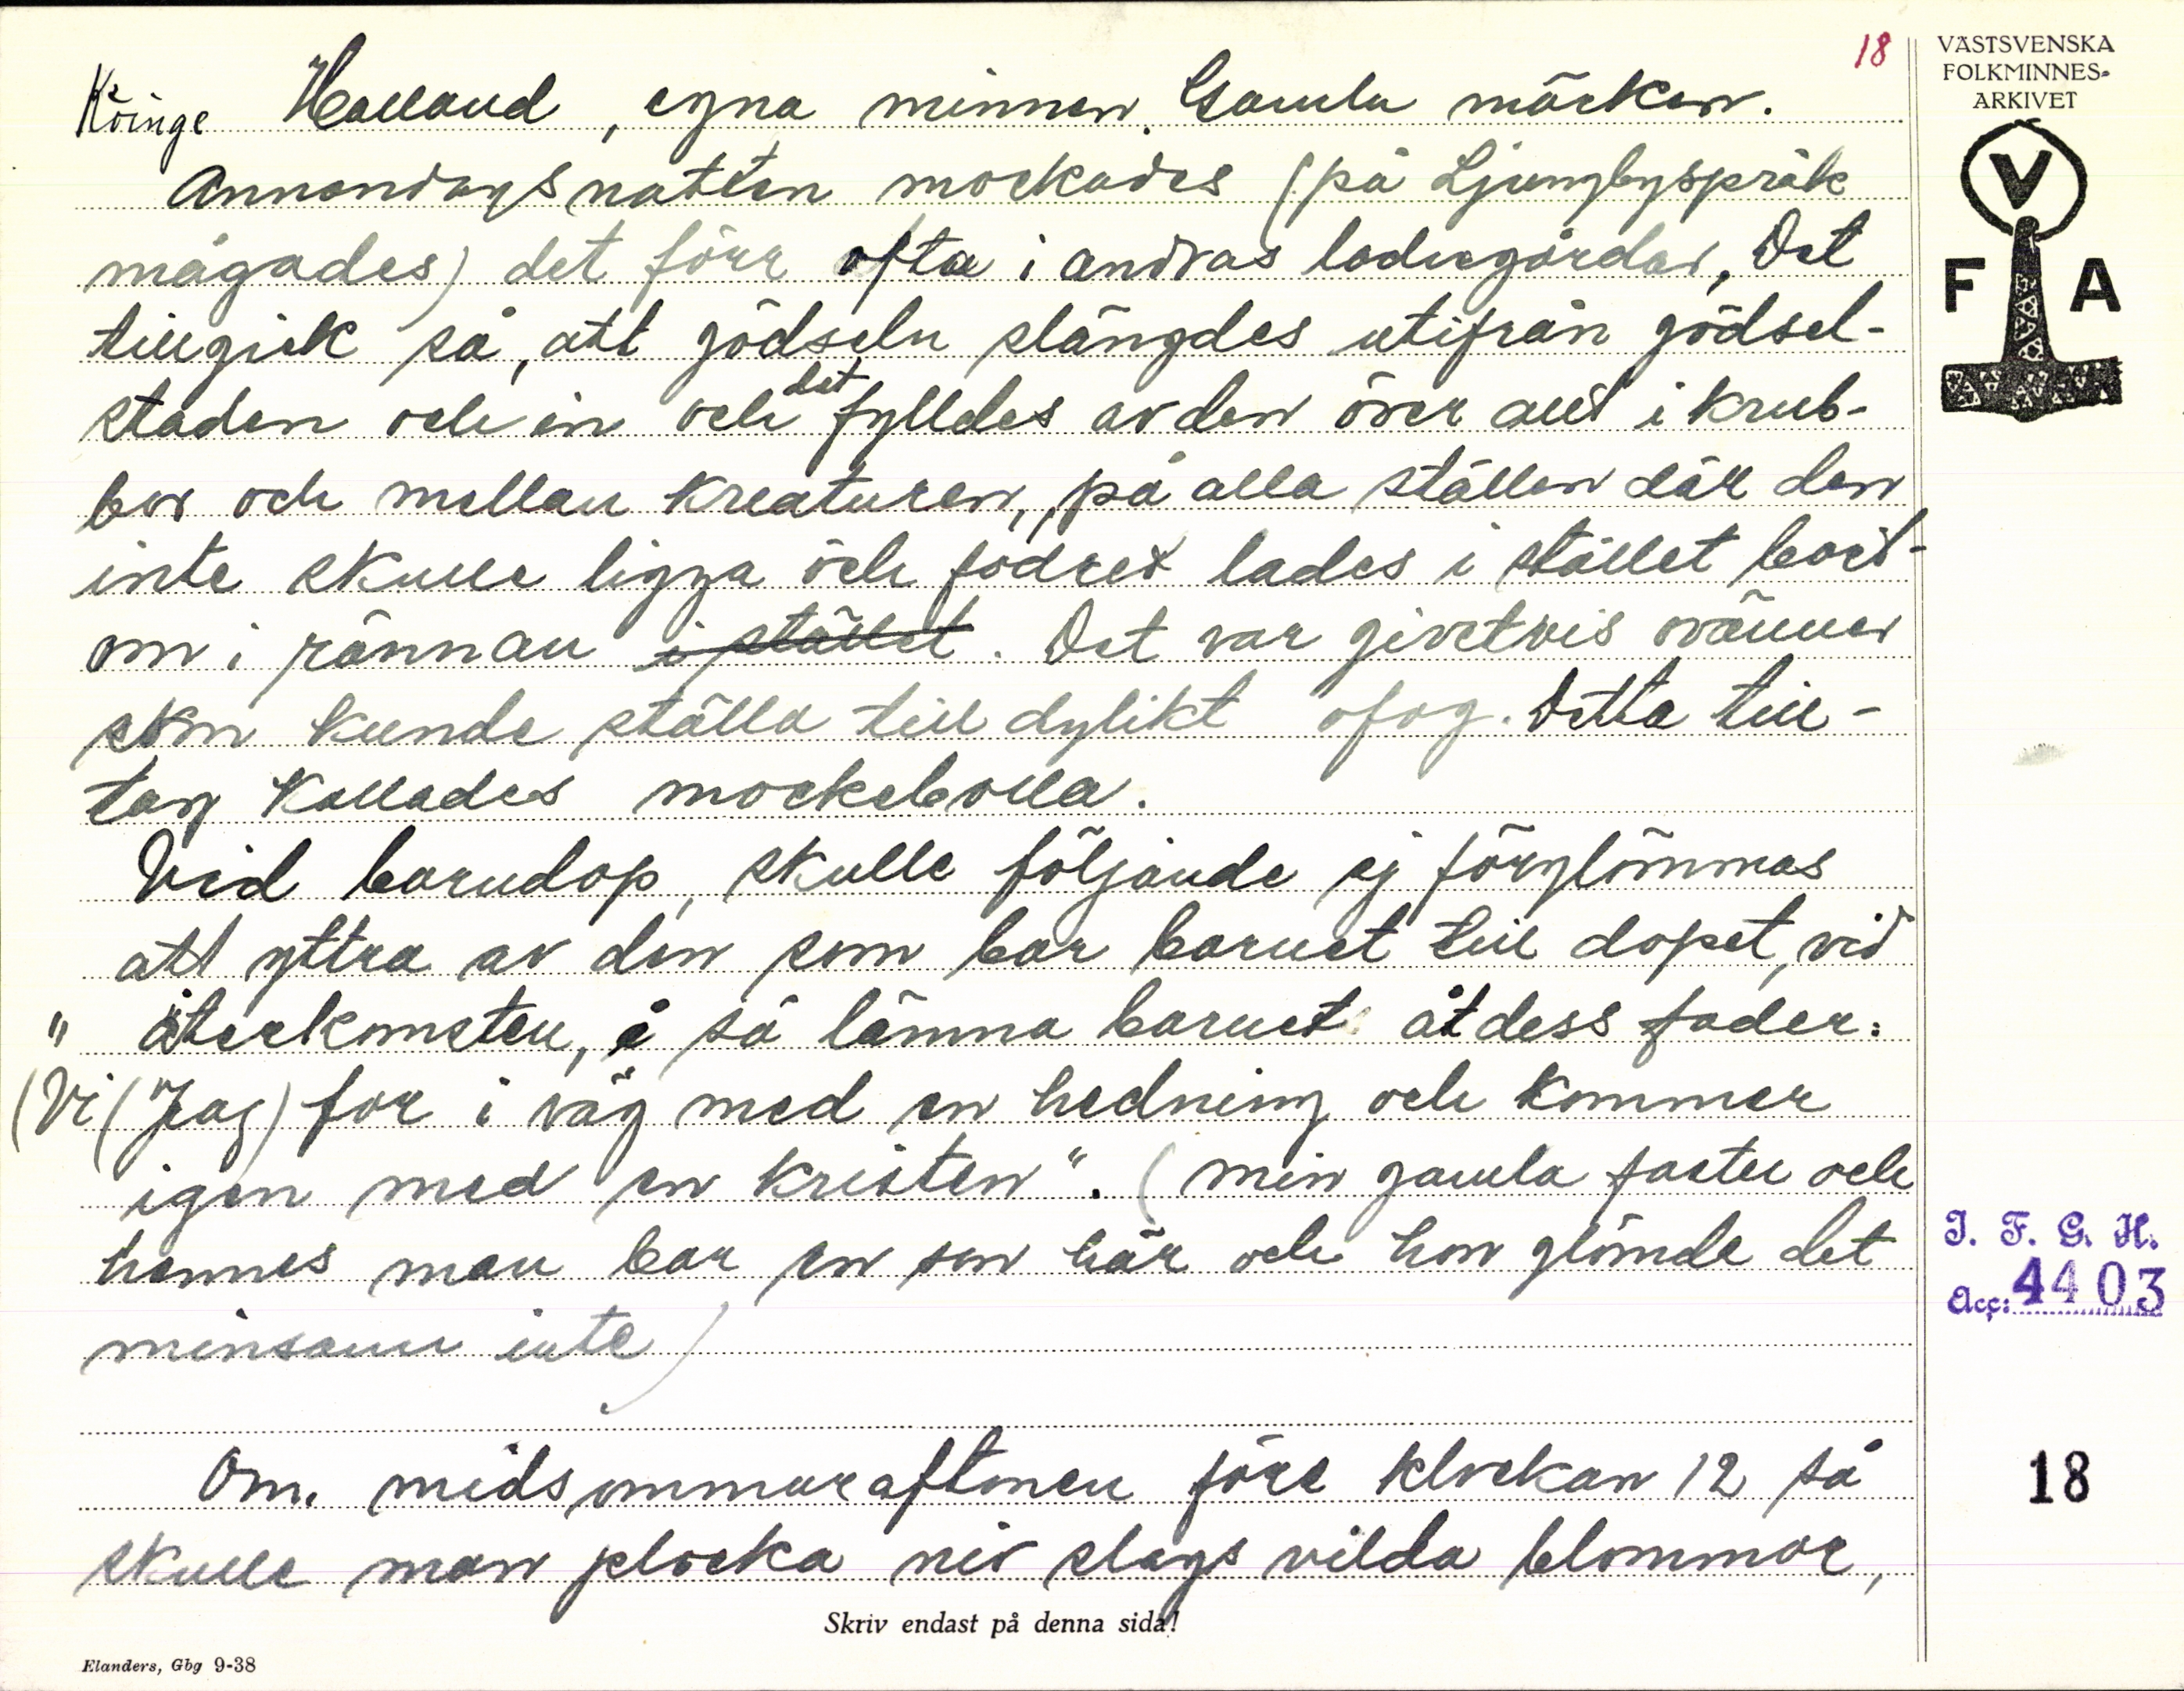 18
VÄSTSVENSKA
FOLKMINNES-
ARKIVET
V
F A
Köinge Halland, egna minnen. Gamla märken.
Annandagsnatten mockades (på Ljungbyspråk
mågades) det förr ofta i andras ladugårdar, Det
tillgick så, att gödseln slängdes utifrån gödsel-
staden och in och det fylldes av den över allt i krub-
bor och mellan kreaturen, på alla ställen där den
inte skulle ligga och fodret lades i stället bort-
om i rännan i stället. Det var givetvis ovänner
som kunde ställa till dylikt ofog. Detta till-
tag kallades mockebolla.
Vid barndop, skulle följande ej förglömmas
att yttra av den som bar barnet till dopet, vid
" återkomsten, å så lämna barnet åt dess fader:
(Vi (Jag) for i väg med en hedning och kommer
igen med en kristen". (min gamla faster och
hennes man bar en son här och hon glömde det
minsann inte)
Om midsommaraftonen före klockan 12 så
skulle man plocka nio slags vilda blommor,
I. F. G. H.
Acc: 4403
18
Skriv endast på denna sida!
Elanders, Gbg 9-38